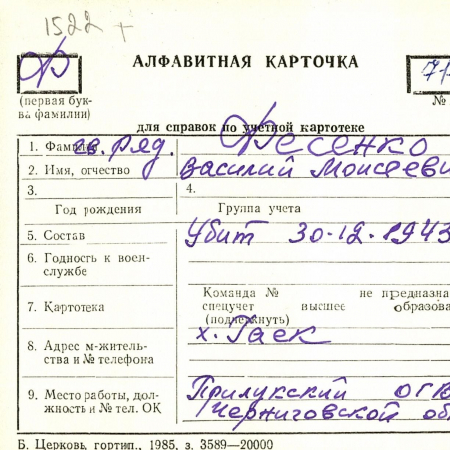 1522 +
Ф
АЛФАВИТНАЯ КАРТОЧКА
(первая бук-
ва фамилии)
№
для справок по учетной картотеке
1. Фамилия гв. ряд. Фесенко
2. Имя, отчество Василий Моисееви
3.
4.
Год рождения
Группа учета
5. Состав Убит 30-12-1943
6. Годность к воен-
службе
7. Картотека
Команда № не предназна
спецучет высшее образова
(подчеркнуть)
х. Гаек
8. Адрес м-житель-
ства и № телефона
9. Место работы, дол-
жность и № тел. ОК
Прилукский ОГВ
Черниговской об
Б. Церковь, гортип., 1985, з. 3589—20000